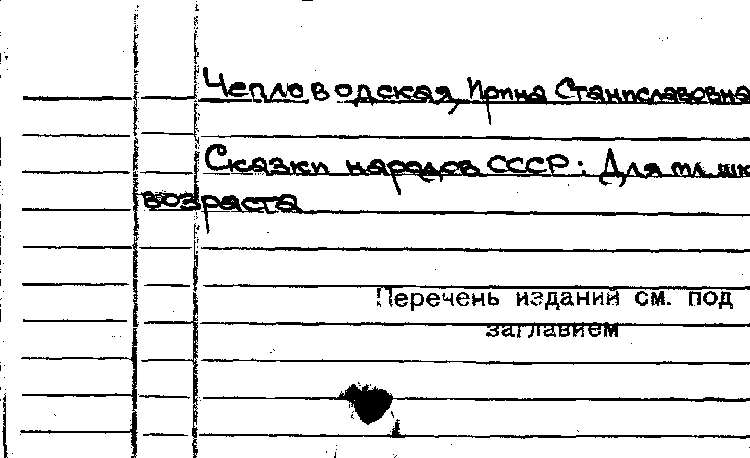 Чепловодская, Ирина Станиславовна
Сказки народов СССР: Для мл. шк
возраста
Перечень изданий см. под
заглавием